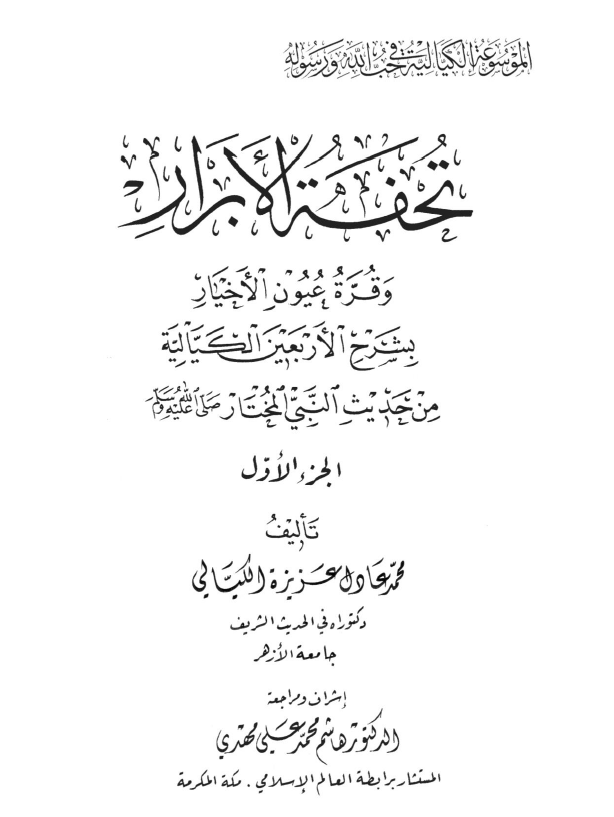 الموسوعة الكيالية في حب الله ورسوله
تحفة الأبرار
وَقُرَّةُ عُيُونِ الأَخْيَارِ
بِشَرْحِ الأَرْبَعِينَ الكَيَّالِيَّةِ
مِنْ حَدِيْثِ النَّبِيِّ المُخْتَارِ صَلَّى اللهُ عَلَيْهِ وَسَلَّمَ
الجزء الأوّل
تَأليفُ
محمّد عادل عزيزة الكيّالي
دكتوراه في الحديث الشريف
جامعة الأزهر
إشراف ومراجعة
الدكتور هاشم محمّد علي مهدي
المستشار برابطة العالم الإسلامي . مكة المكرمة